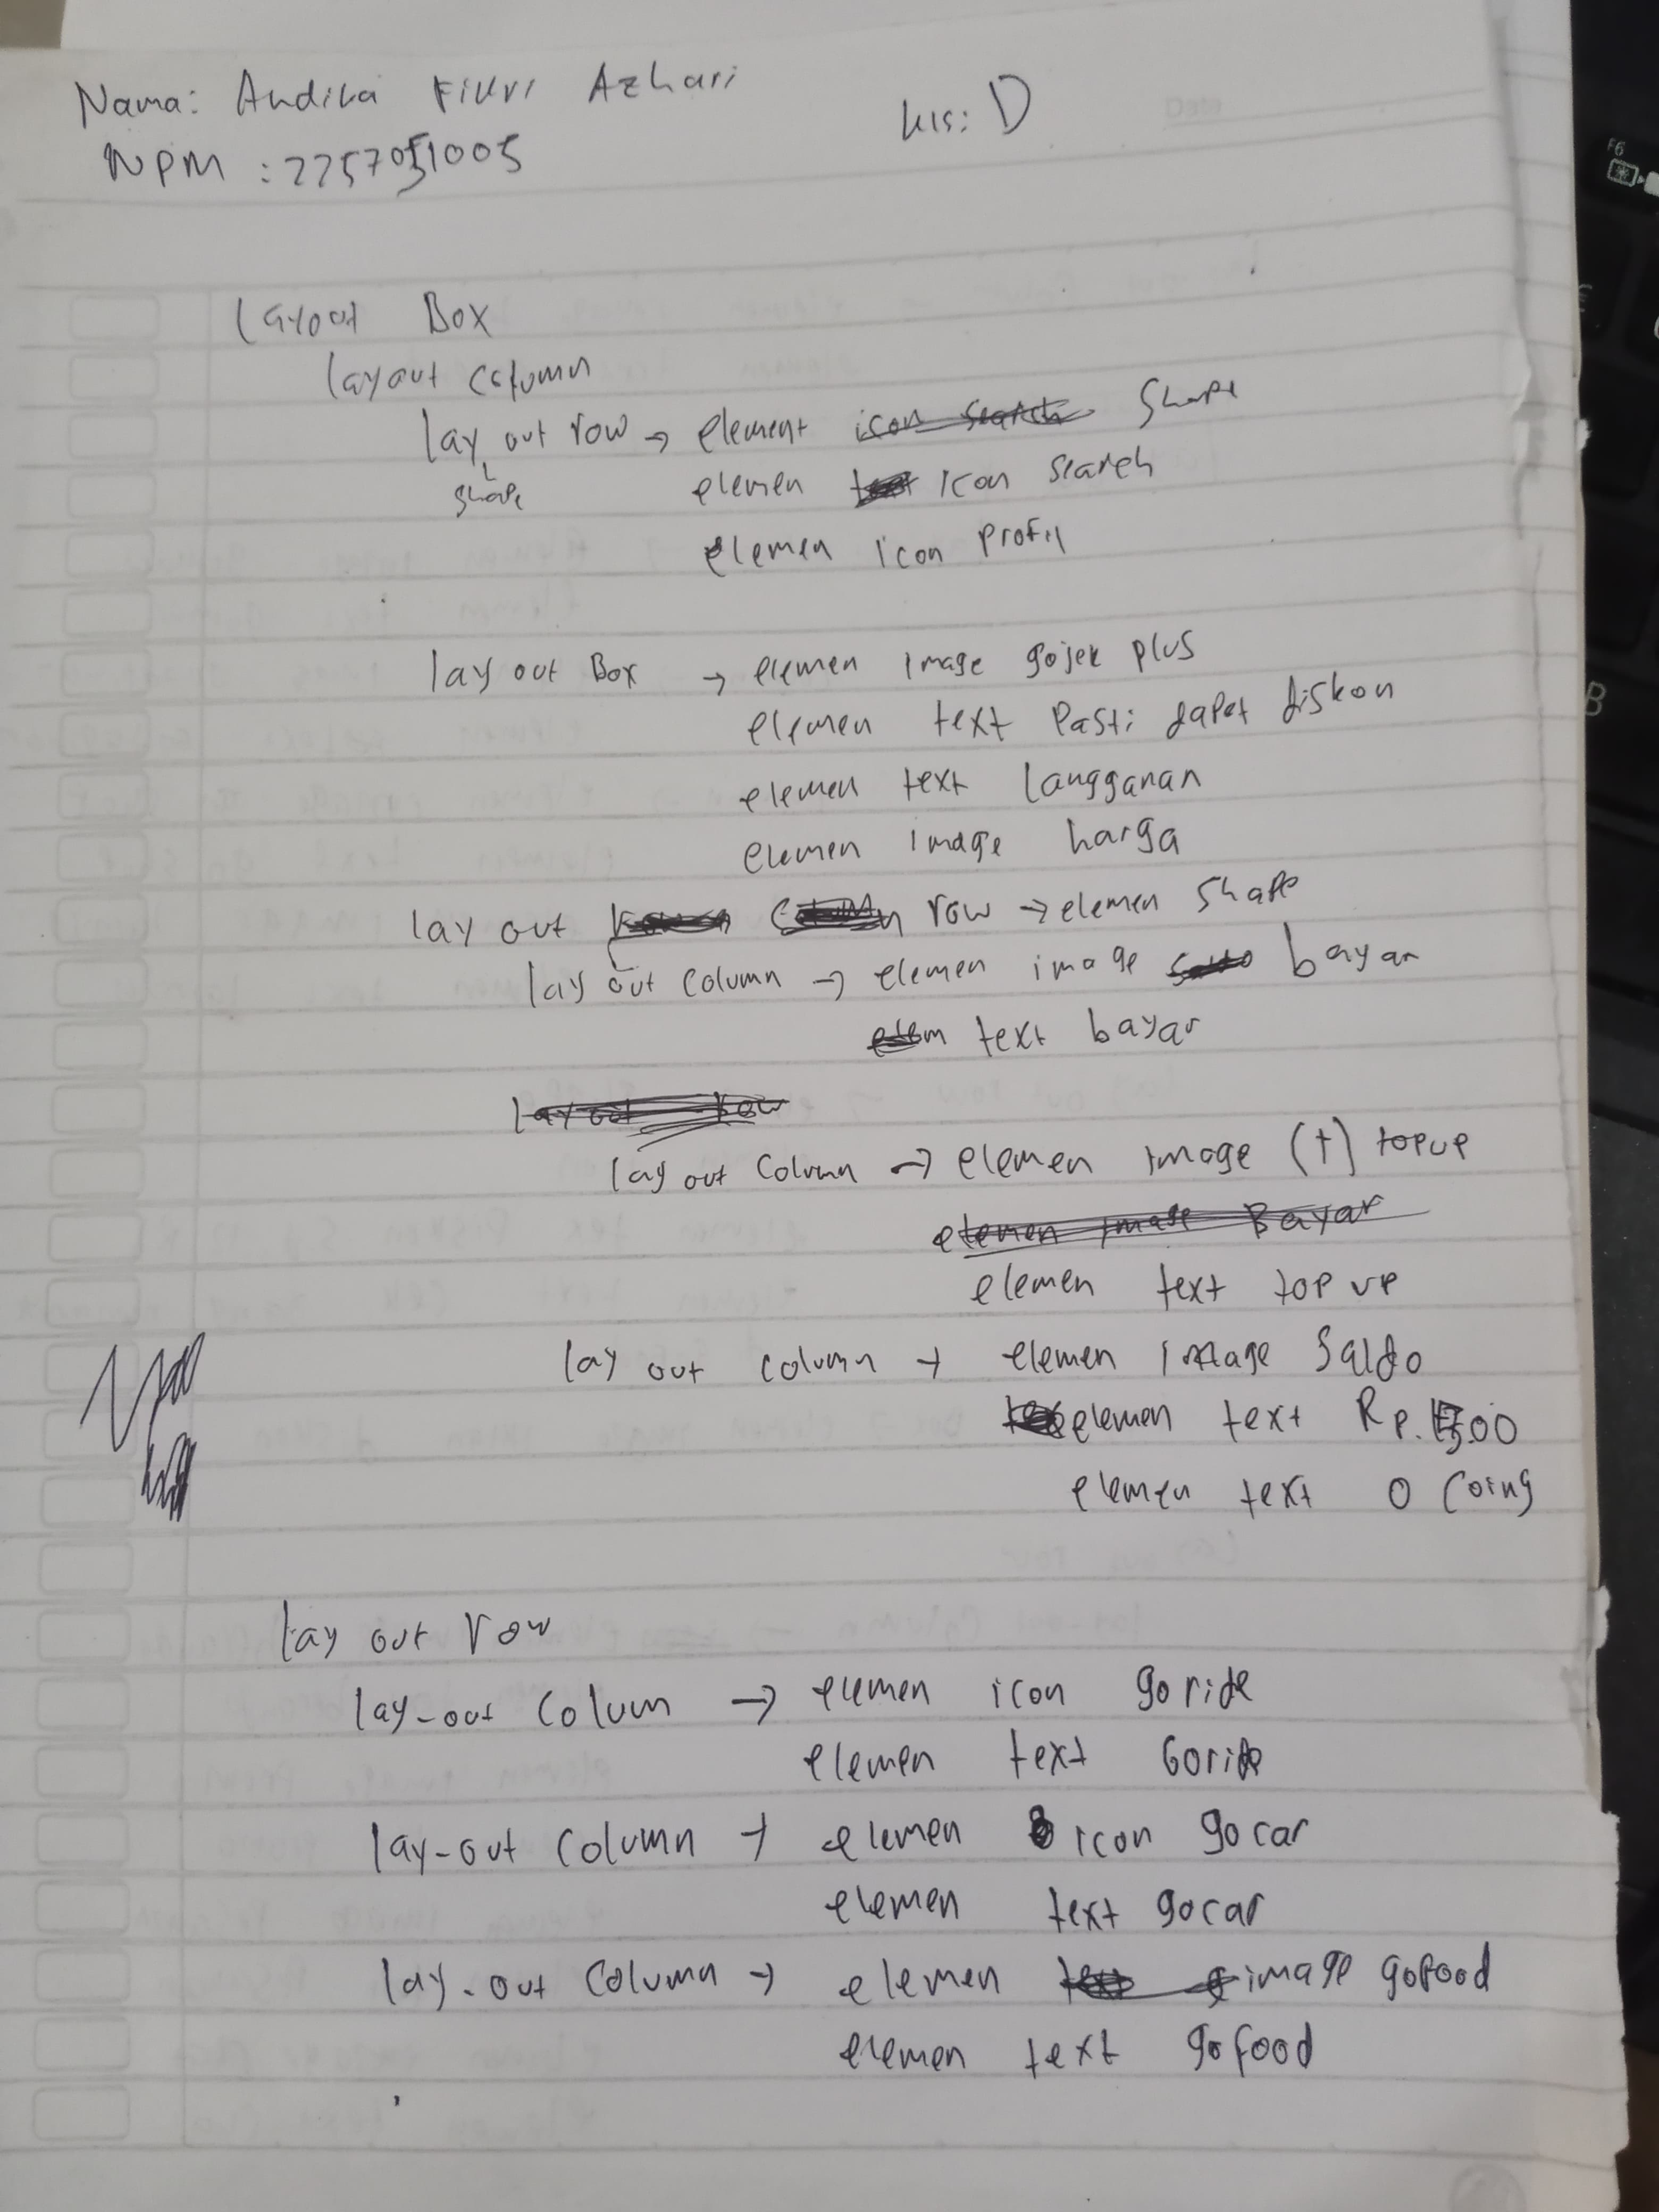 Nama: Andika Fikri Azhari
kls: D
NPM : 2257051005
Layout Box
layout column
lay out row → element icon search shape
shape
elemen text icon search
elemen icon profil
lay out Box → elemen image gojek plus
elemen text Pasti dapet diskon
elemen text langganan
elemen image harga
lay out row → elemen shape
lay out column → elemen image bayar
text bayar
layout row
lay out column → elemen image (+) topup
elemen image Bayar
elemen text top up
lay out column → elemen image Saldo
elemen text Rp.
elemen text 0 Coins
lay out row
lay-out Colum → elemen icon goride
elemen text Goride
lay-out column → elemen icon gocar
elemen text gocar
lay-out column → elemen image gofood
elemen text gofood